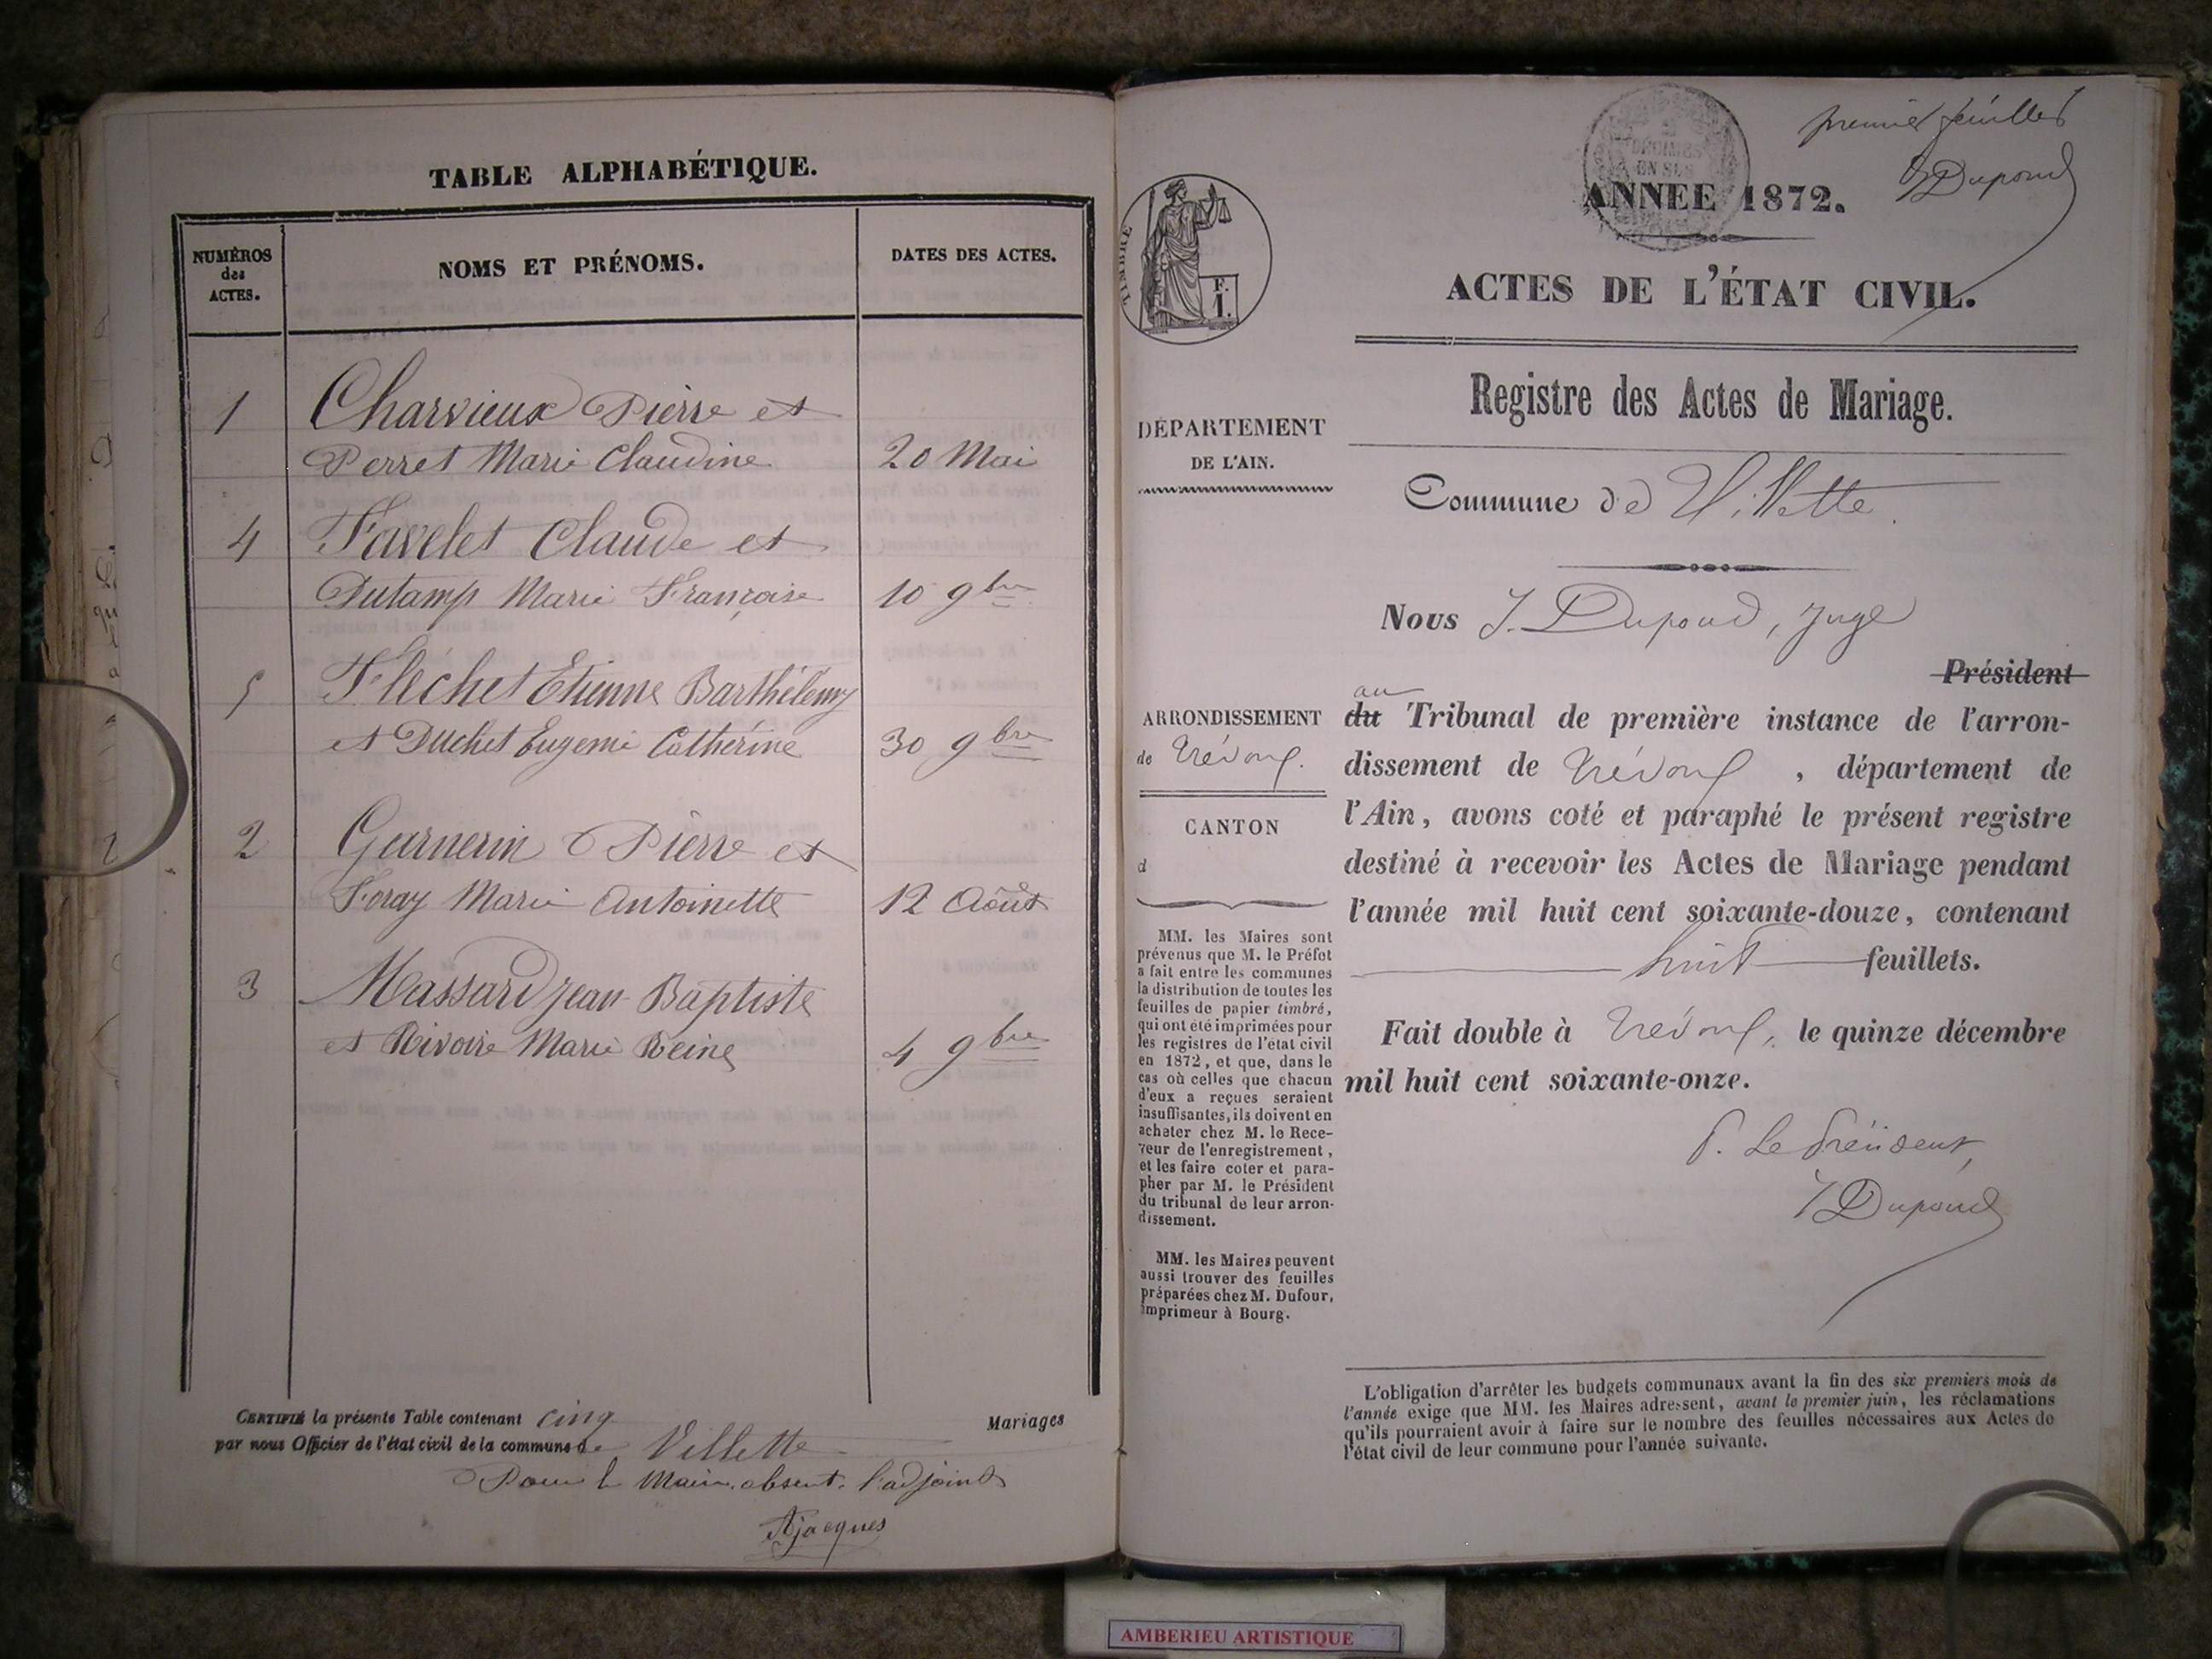 TABLE ALPHABÉTIQUE.
NUMÉROS
des
ACTES.
NOMS ET PRÉNOMS.
DATES DES ACTES.
1 Charvieux Pierre et
Perret Marie Claudine 20 Mai
4 Favelet Claude et
Dutamp Marie Françoise 10 9bre
5 Fléchet Etienne Barthélemy
et Duchet Eugenie Catherine 30 9bre
2 Garnerin Pierre et
Foray Marie Antoinette 12 Août
3 Massard Jean Baptiste
et Rivoire Marie Reine 4 9bre
CERTIFIÉ la présente Table contenant cinq Mariages
par nous Officier de l'état civil de la commune de Villette
Pour le Maire absent, l'adjoint
Ajacques
premier feuillet
J Dupond
DÉCIMES
EN SUS
ANNEE 1872.
TIMBRE
F.
1.
ACTES DE L'ÉTAT CIVIL.
Registre des Actes de Mariage.
DÉPARTEMENT
DE L'AIN.
Commune de Villette
Nous J. Dupond, juge
Président
au
ARRONDISSEMENT
de Trévoux.
CANTON
d
du Tribunal de première instance de l'arron-
dissement de Trévoux, département de
l'Ain, avons coté et paraphé le présent registre
destiné à recevoir les Actes de Mariage pendant
l'année mil huit cent soixante-douze, contenant
huit feuillets.
Fait double à Trévoux, le quinze décembre
mil huit cent soixante-onze.
P. Le Président,
J Dupond
MM. les Maires sont
prévenus que M. le Préfet
a fait entre les communes
la distribution de toutes les
feuilles de papier timbré,
qui ont été imprimées pour
les registres de l'état civil
en 1872, et que, dans le
cas où celles que chacun
d'eux a reçues seraient
insuffisantes, ils doivent en
acheter chez M. le Rece-
veur de l'enregistrement,
et les faire coter et para-
pher par M. le Président
du tribunal de leur arron-
dissement.
MM. les Maires peuvent
aussi trouver des feuilles
préparées chez M. Dufour,
imprimeur à Bourg.
L'obligation d'arrêter les budgets communaux avant la fin des six premiers mois de
l'année exige que MM. les Maires adressent, avant le premier juin, les réclamations
qu'ils pourraient avoir à faire sur le nombre des feuilles nécessaires aux Actes de
l'état civil de leur commune pour l'année suivante.
AMBERIEU ARTISTIQUE